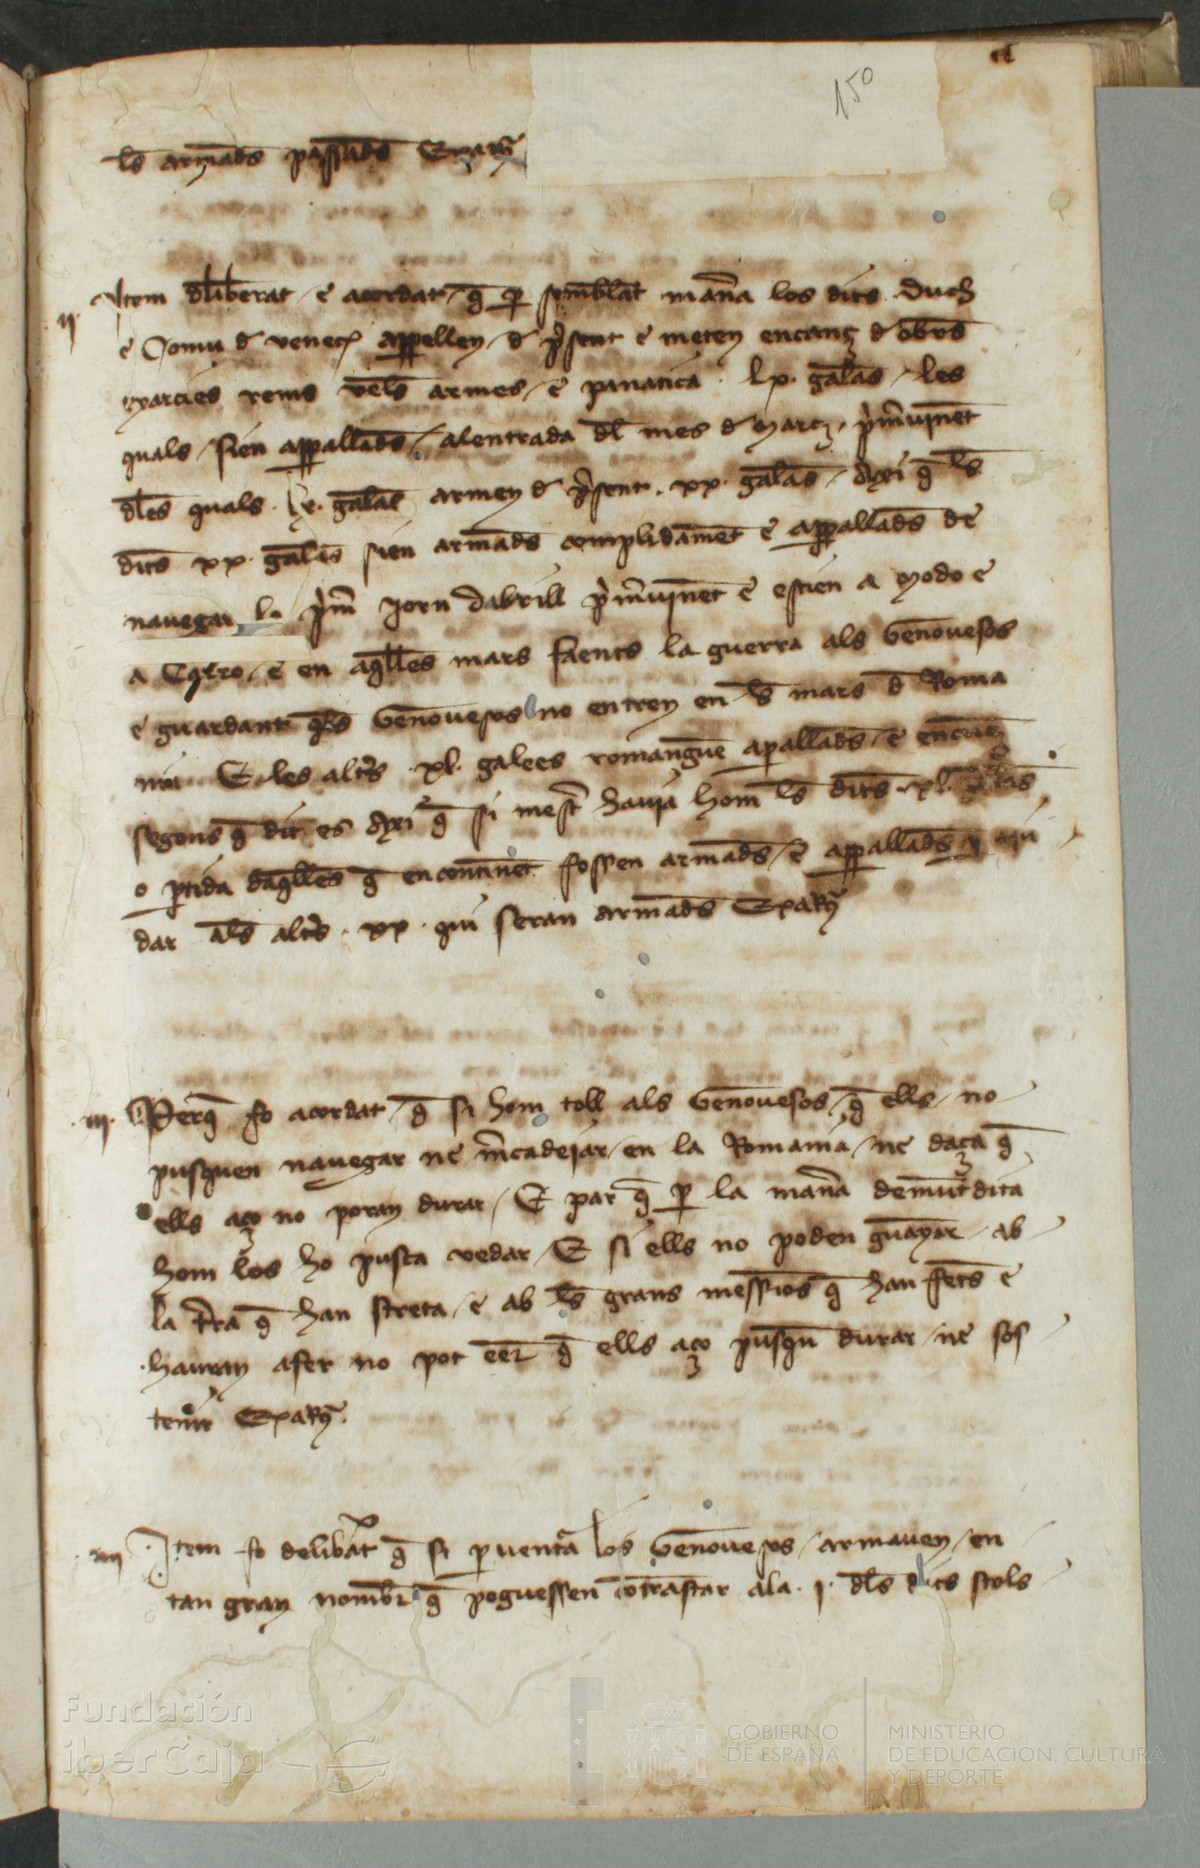 150
ls armads passads Exarȝ
ij. Item dliberat e acordat q̄ p semblāt manā los dits Duch
e Comu d Venec appellen d p̄sent e meten encant d obrs
exarcies rems vels armes e panatica . lx. galās les
quals sien appallads alentrada dl mes d març p̄mvinēt
dles quals . lx. galās armen d p̄sent . xx. galās axi q̄ ls
dits xx. galās sien armads complidamēt e appallads de
navegar lo p̄m jorn dabrill p̄mvinēt e estien a Modo e
a Cotro e en aq̄lles mars faents la guerra als Genoveses
e guardant qls Genoveses no entren en ls mars d Roma
nia E les altrs . xl. galees romanguē apallads e
segons q̄ dit es axi q̄ si mestr havia hom ls dits . xl. galās
o ptida daq̄lles q̄ encontinēt fossen armads e appallads
dar als altrs . xx. qui seran armads Exarȝ
iij. Perq̄ fo acordat q̄ si hom toll als Genovesos q̄ ells no
pusquen navegar ne m̄cadejar en la Romania ne daça q̄
ells aço no poran durar E par q̄ p la manā demūtdita
hom los ho pusca vedar E si ells no poden guāyar ab
la t̄ra q̄ han streta e ab ls grans messios q̄ han fets e
hauran afer no pot eēr q̄ ells aço pusquē durar ne sos
tenir Exarȝ.
iiij Item fo delibāt q̄ si pventā los Genoveses armaven en
tan gran nombr q̄ poguessen cōtrastar ala . j. dls dits stols
Fundación
iberCaja
GOBIERNO
DE ESPAÑA
MINISTERIO
DE EDUCACIÓN, CULTURA
Y DEPORTE